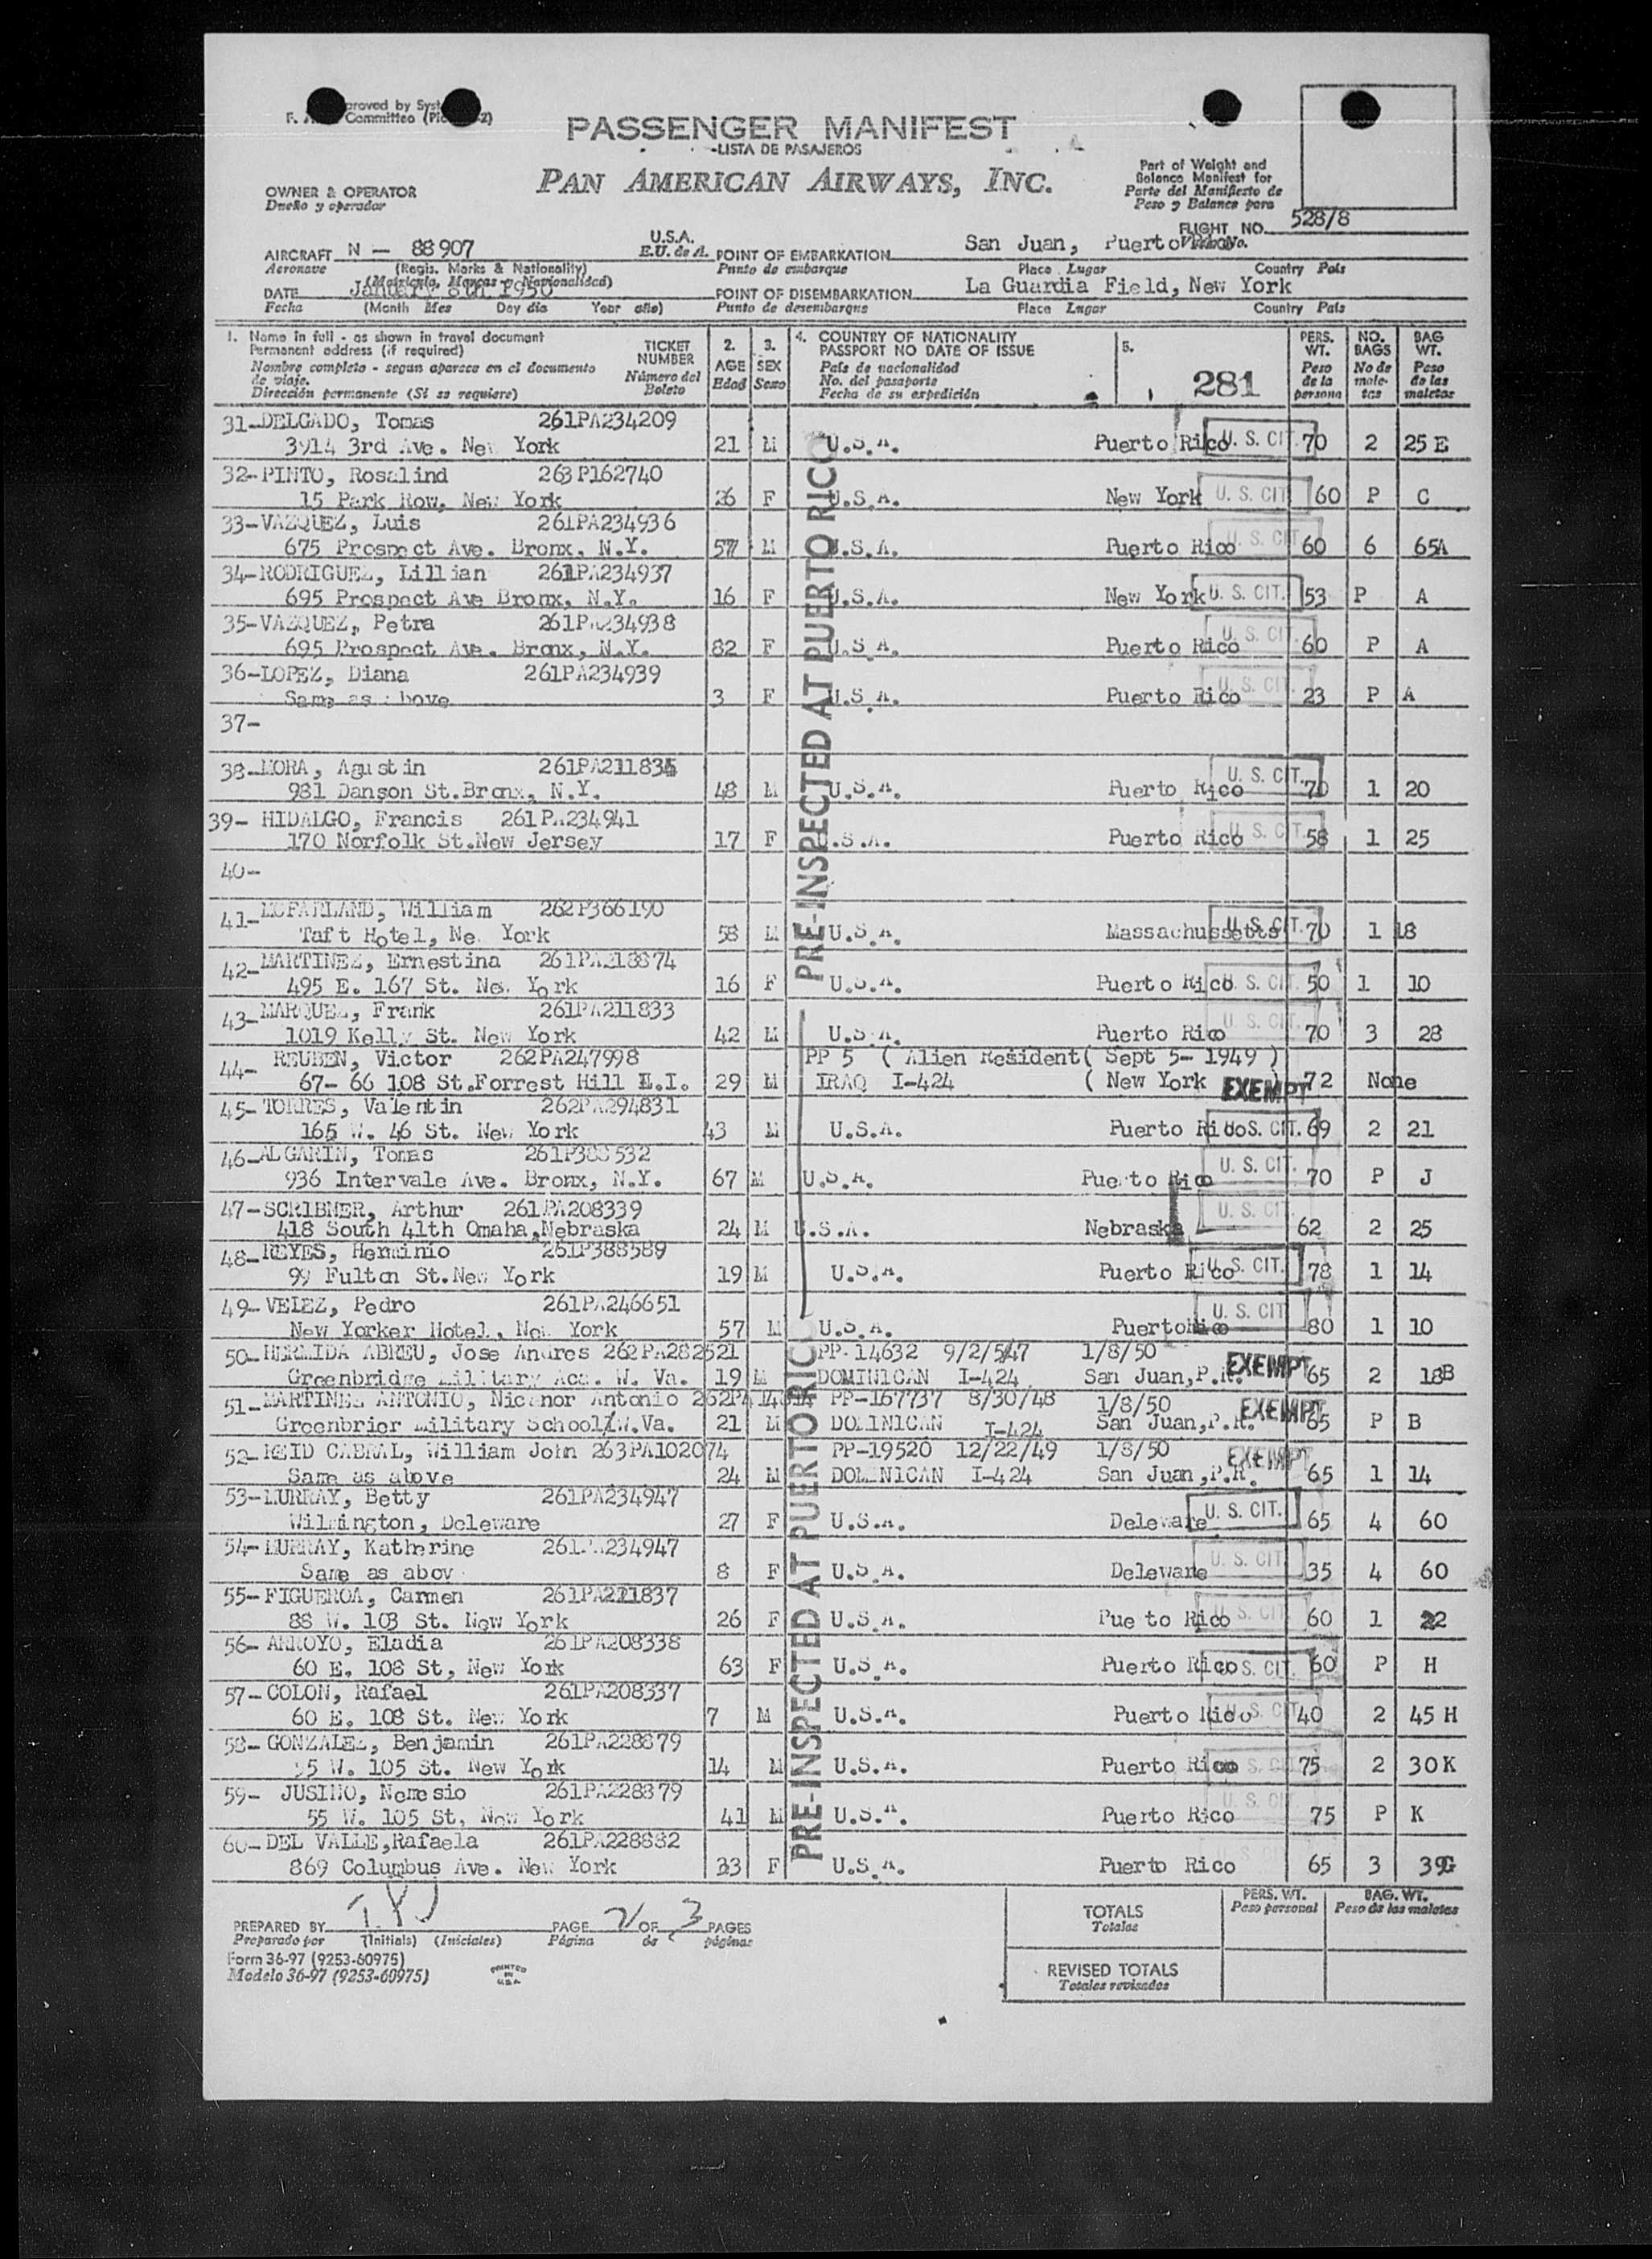 PASSENGER MANIFEST
-LISTA DE PASAJEROS
PAN AMERICAN AIRWAYS, INC.
Part of Weight and
Balance Manifest for
Parte del Manifiesto de
Peso y Balance para
OWNER & OPERATOR
Dueño y operador
FLIGHT NO. 528/8
AIRCRAFT N - 88907 U.S.A.
E.U. de A. POINT OF EMBARKATION San Juan, Puerto
Aeronave (Regis. Marks & Nationality) Punto de embarque Place Lugar Country País
(Matrícula, Marcas y Nacionalidad)
DATE January 8th 1950 POINT OF DISEMBARKATION La Guardia Field, New York
Fecha (Month Mes Day día Year año) Punto de desembarque Place Lugar Country País
1. Name in full - as shown in travel document
Permanent address (if required)
Nombre completo - segun aparece en el documento
de viaje.
Dirección permanente (Si se requiere)
TICKET
NUMBER
Número del
Boleto
2.
AGE
Edad
3.
SEX
Sexo
4. COUNTRY OF NATIONALITY
PASSPORT NO DATE OF ISSUE
País de nacionalidad
No. del pasaporte
Fecha de su expedición
5.
281
PERS.
WT.
Peso
de la
persona
NO.
BAGS
No de
male-
tas
BAG
WT.
Peso
de las
maletas
PRE-INSPECTED AT PUERTO RICO
31-DELGADO, Tomas 261PA234209
3914 3rd Ave. New York 21 M U.S.A. Puerto Rico U. S. CIT 70 2 25 E
32-PINTO, Rosalind 263P162740
15 Park Row, New York 26 F U.S.A. New York U. S. CIT 60 P C
33-VAZQUEZ, Luis 261PA234936
675 Prospect Ave. Bronx, N.Y. 57 M U.S.A. Puerto Rico U. S. CIT 60 6 65A
34-RODRIGUEZ, Lillian 261PA234937
695 Prospect Ave Bronx, N.Y. 16 F U.S.A. New York U. S. CIT. 53 P A
35-VAZQUEZ, Petra 261PA234938
695 Prospect Ave. Bronx, N.Y. 82 F U.S.A. Puerto Rico U. S. CIT. 60 P A
36-LOPEZ, Diana 261PA234939
Same as above 3 F U.S.A. Puerto Rico U. S. CIT. 23 P A
37-
38-MORA, Agustin 261PA211835
981 Danson St.Bronx, N.Y. 48 M U.S.A. Puerto Rico U. S. CIT. 70 1 20
39- HIDALGO, Francis 261PA234941
170 Norfolk St.New Jersey 17 F U.S.A. Puerto Rico U. S. CIT. 58 1 25
40-
41-MCFARLAND, William 262P366190
Taft Hotel, New York 58 M U.S.A. Massachussetts U. S. CIT. 70 1 18
42-MARTINEZ, Ernestina 261PA218874
495 E. 167 St. New York 16 F U.S.A. Puerto Rico U. S. CIT. 50 1 10
43-MARQUEZ, Frank 261PA211833
1019 Kelly St. New York 42 M U.S.A. Puerto Rico U. S. CIT. 70 3 28
44- REUBEN, Victor 262PA247998 PP 5 ( Alien Resident( Sept 5- 1949 )
67- 66 108 St.Forrest Hill L.I. 29 M IRAQ I-424 ( New York EXEMPT 72 None
45-TORRES, Valentin 262PA294831
165 W. 46 St. New York 43 M U.S.A. Puerto Rico U. S. CIT. 69 2 21
46-ALGARIN, Tomas 261P388532
936 Intervale Ave. Bronx, N.Y. 67 M U.S.A. Puerto Rico U. S. CIT. 70 P J
47-SCRIBNER, Arthur 261PA208339
418 South 41th Omaha,Nebraska 24 M U.S.A. Nebraska U. S. CIT. 62 2 25
48-REYES, Herminio 261P388589
99 Fulton St.New York 19 M U.S.A. Puerto Rico U. S. CIT. 78 1 14
49-VELEZ, Pedro 261PA246651
New Yorker Hotel, New York 57 M U.S.A. Puerto Rico U. S. CIT 80 1 10
PRE-INSPECTED AT PUERTO RICO
50-HERMIDA ABREU, Jose Andres 262PA282521 PP-14632 9/2/47 1/8/50
Greenbridge Military Aca. W. Va. 19 M DOMINICAN I-424 San Juan,P.R. EXEMPT 65 2 18B
51-MARTINEZ ANTONIO, Nicanor Antonio PP-167737 8/30/48 1/8/50
Greenbrier Military School,W.Va. 21 M DOMINICAN I-424 San Juan,P.R. EXEMPT 65 P B
52-REID CABRAL, William John 263PA102074 PP-19520 12/22/49 1/8/50
Same as above 24 M DOMINICAN I-424 San Juan,P.R. EXEMPT 65 1 14
53-MURRAY, Betty 261PA234947
Wilmington, Deleware 27 F U.S.A. Deleware U. S. CIT. 65 4 60
54-MURRAY, Katherine 261PA234947
Same as abov 8 F U.S.A. Deleware U. S. CIT 35 4 60
55-FIGUEROA, Carmen 261PA211837
88 W. 103 St. New York 26 F U.S.A. Puerto Rico U. S. CIT 60 1 22
56- ARROYO, Eladia 261PA208338
60 E. 108 St, New York 63 F U.S.A. Puerto Rico U. S. CIT. 60 P H
57-COLON, Rafael 261PA208337
60 E. 108 St. New York 7 M U.S.A. Puerto Rico U. S. CIT 40 2 45 H
58- GONZALEZ, Benjamin 261PA228879
55 W. 105 St. New York 14 M U.S.A. Puerto Rico U. S. CIT 75 2 30K
59- JUSINO, Nemesio 261PA228879
55 W. 105 St, New York 41 M U.S.A. Puerto Rico U. S. CIT 75 P K
60-DEL VALLE,Rafaela 261PA228882
869 Columbus Ave. New York 33 F U.S.A. Puerto Rico 65 3 39G
PREPARED BY PAGE 2 OF 3 PAGES
Preparado por (Initials) (Iniciales) Página de páginas
Form 36-97 (9253-60975)
Modelo 36-97 (9253-60975)
PRINTED
IN
U.S.A.
TOTALS
Totales
PERS. WT.
Peso personal
BAG. WT.
Peso de las maletas
REVISED TOTALS
Totales revisados